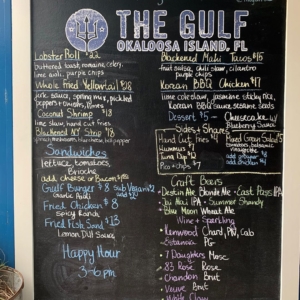 THE GULF
OKALOOSA ISLAND, FL
Lobster Roll $22
buttered toast, romaine, celery,
lime aioli, purple chips
Whole Fried Yellowtail $18
Coconut Shrimp $18
lime slaw, hand cut fries
Blackened NY Strip $18
Sandwiches
lettuce, tomatoes,
Brioche
add cheese or Bacon
Gulf Burger $8
Garlic Aioli
Fried Chicken $8
Spicy Ranch
Fried Fish Sand $13
Lemon Dill Sauce
Happy Hour
3-6pm
Blackened Mahi Tacos $15
fruit salsa, chili slaw, cilantro
purple chips
Korean BBQ Chicken $17
lime coke slaw, jasmine sticky rice,
Korean BBQ sauce, sesame seeds
Dessert $5 - Cheesecake w/
Blueberry Sauce
Sides + Share
Hand Cut Fries $4
Hummus
Tuna Dip
Pico + chips $7
Mixed Green Salad $5
add grouper
add chicken $4
Craft Beers
Destin Ale Blonde Ale - East Pass IPA
Jai Alai IPA - Summer Shandy
Blue Moon Wheat Ale
Wine + Sparkling
Kenwood Chard, PN, Cab
Estancia PG
7 Daughters Mosc
83 Rosé Rosé
Chandon Brut
Veuve Brut
White Claw